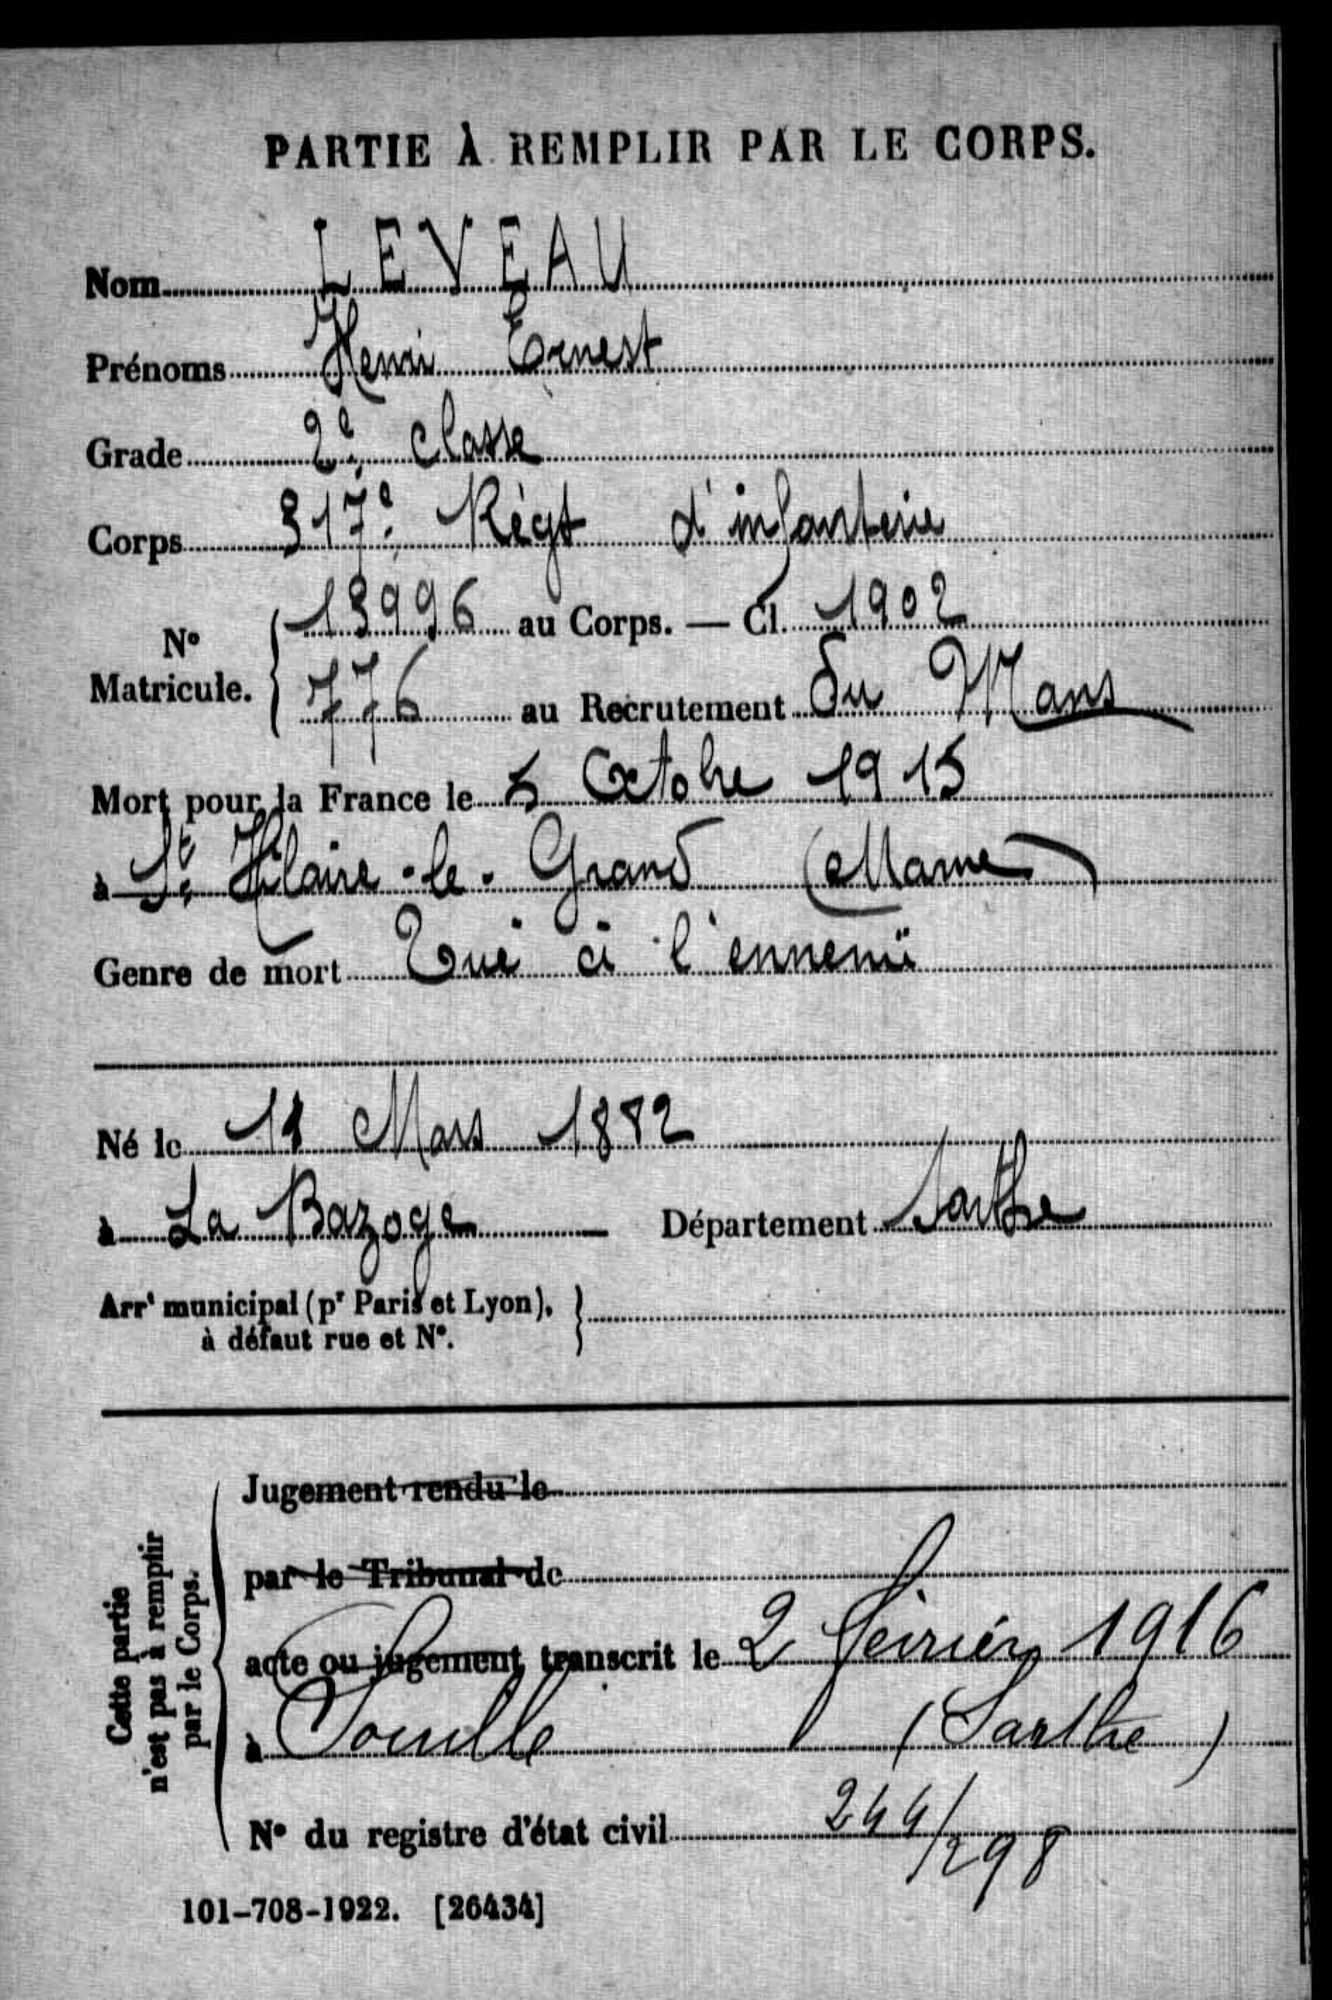 PARTIE À REMPLIR PAR LE CORPS.
Nom LEVEAU
Prénoms Henri Ernest
Grade 2e classe
Corps 317e Régt d'infanterie
No Matricule. 13996 au Corps. — Cl. 1902
776 au Recrutement Du Mans
Mort pour la France le 5 Octobre 1915
à St Hilaire-le-Grand (Marne)
Genre de mort Tué à l'ennemi
Né le Mars 1882
à La Bazoge Département Sarthe
Arrt municipal (pr Paris et Lyon),
à défaut rue et No.
Cette partie
n'est pas à remplir
par le Corps.
Jugement rendu le
par le Tribunal de
acte ou jugement transcrit le 2 février 1916
à Souillé (Sarthe)
No du registre d'état civil 244/298
101-708-1922. [26434]